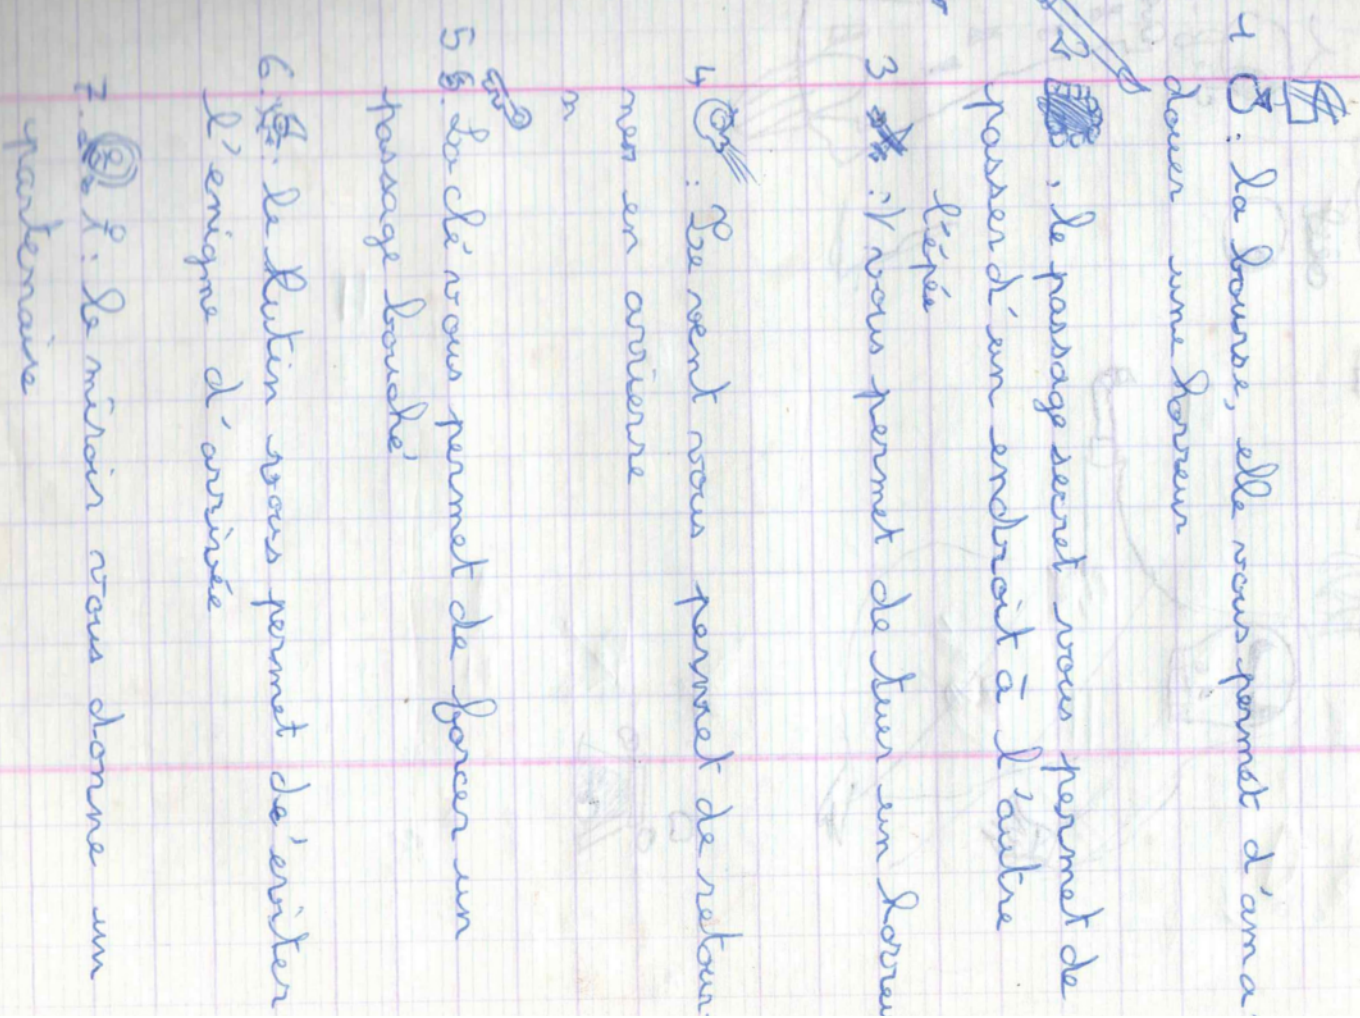 1 : la bourse, elle vous permet d'ama
douer une horreur
2 : le passage secret vous permet de
passer d'un endroit à l'autre
l'épée
3 : vous permet de tuer un horreu
4 : Le vent vous permet de retour-
ner en arrierre
n
5 . La clé vous permet de forcer un
passage bouché
6 . le lutin vous permet de'eviter
l'enigme d'arrivée
7 . : le miroir vous donne un
partenaire